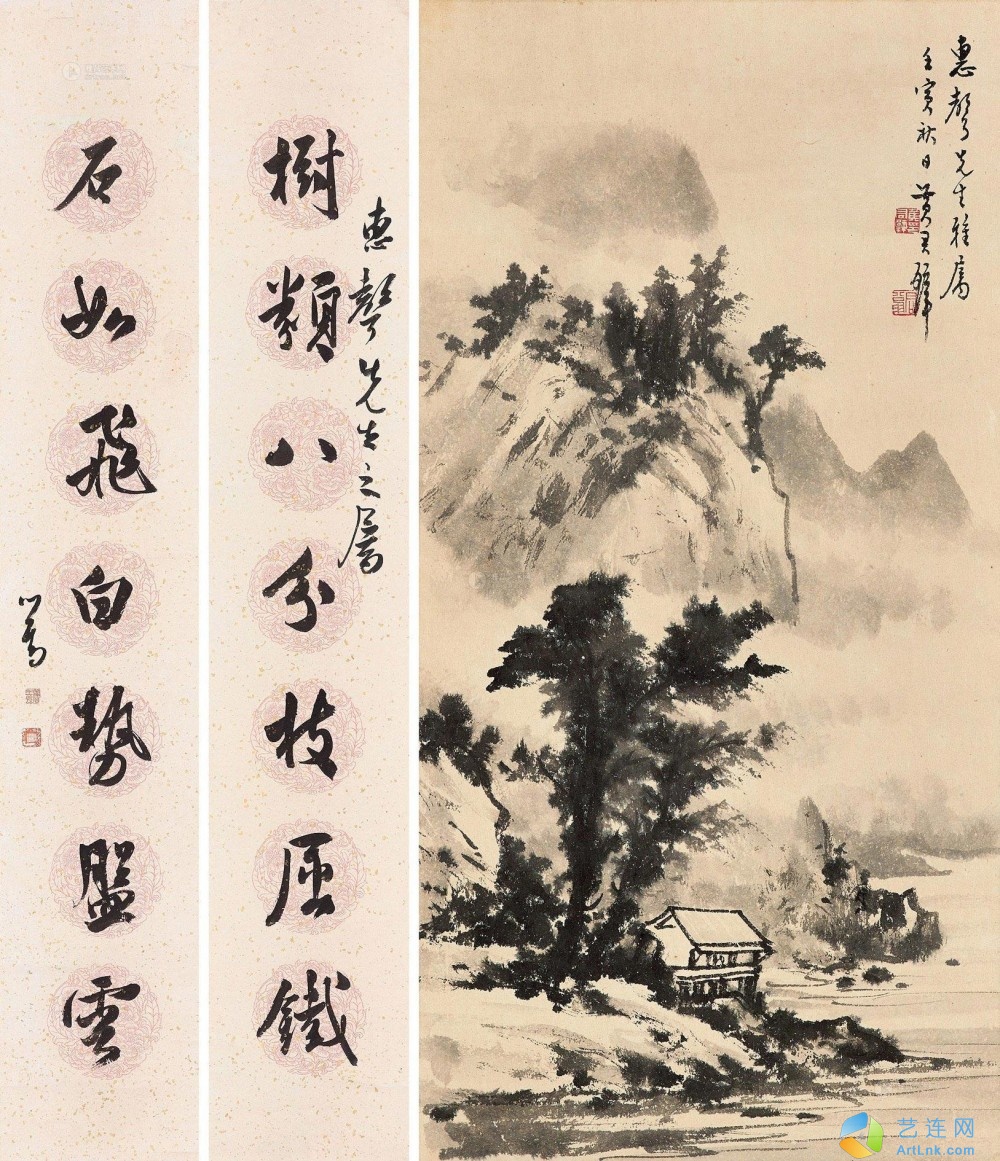 惠聲先生雅屬
壬寅秋日黃君璧
惠聲先生之屬
樹類八分枝屈鐵
石如飛白勢盤雲
心畬
艺连网
ArtLnk.com